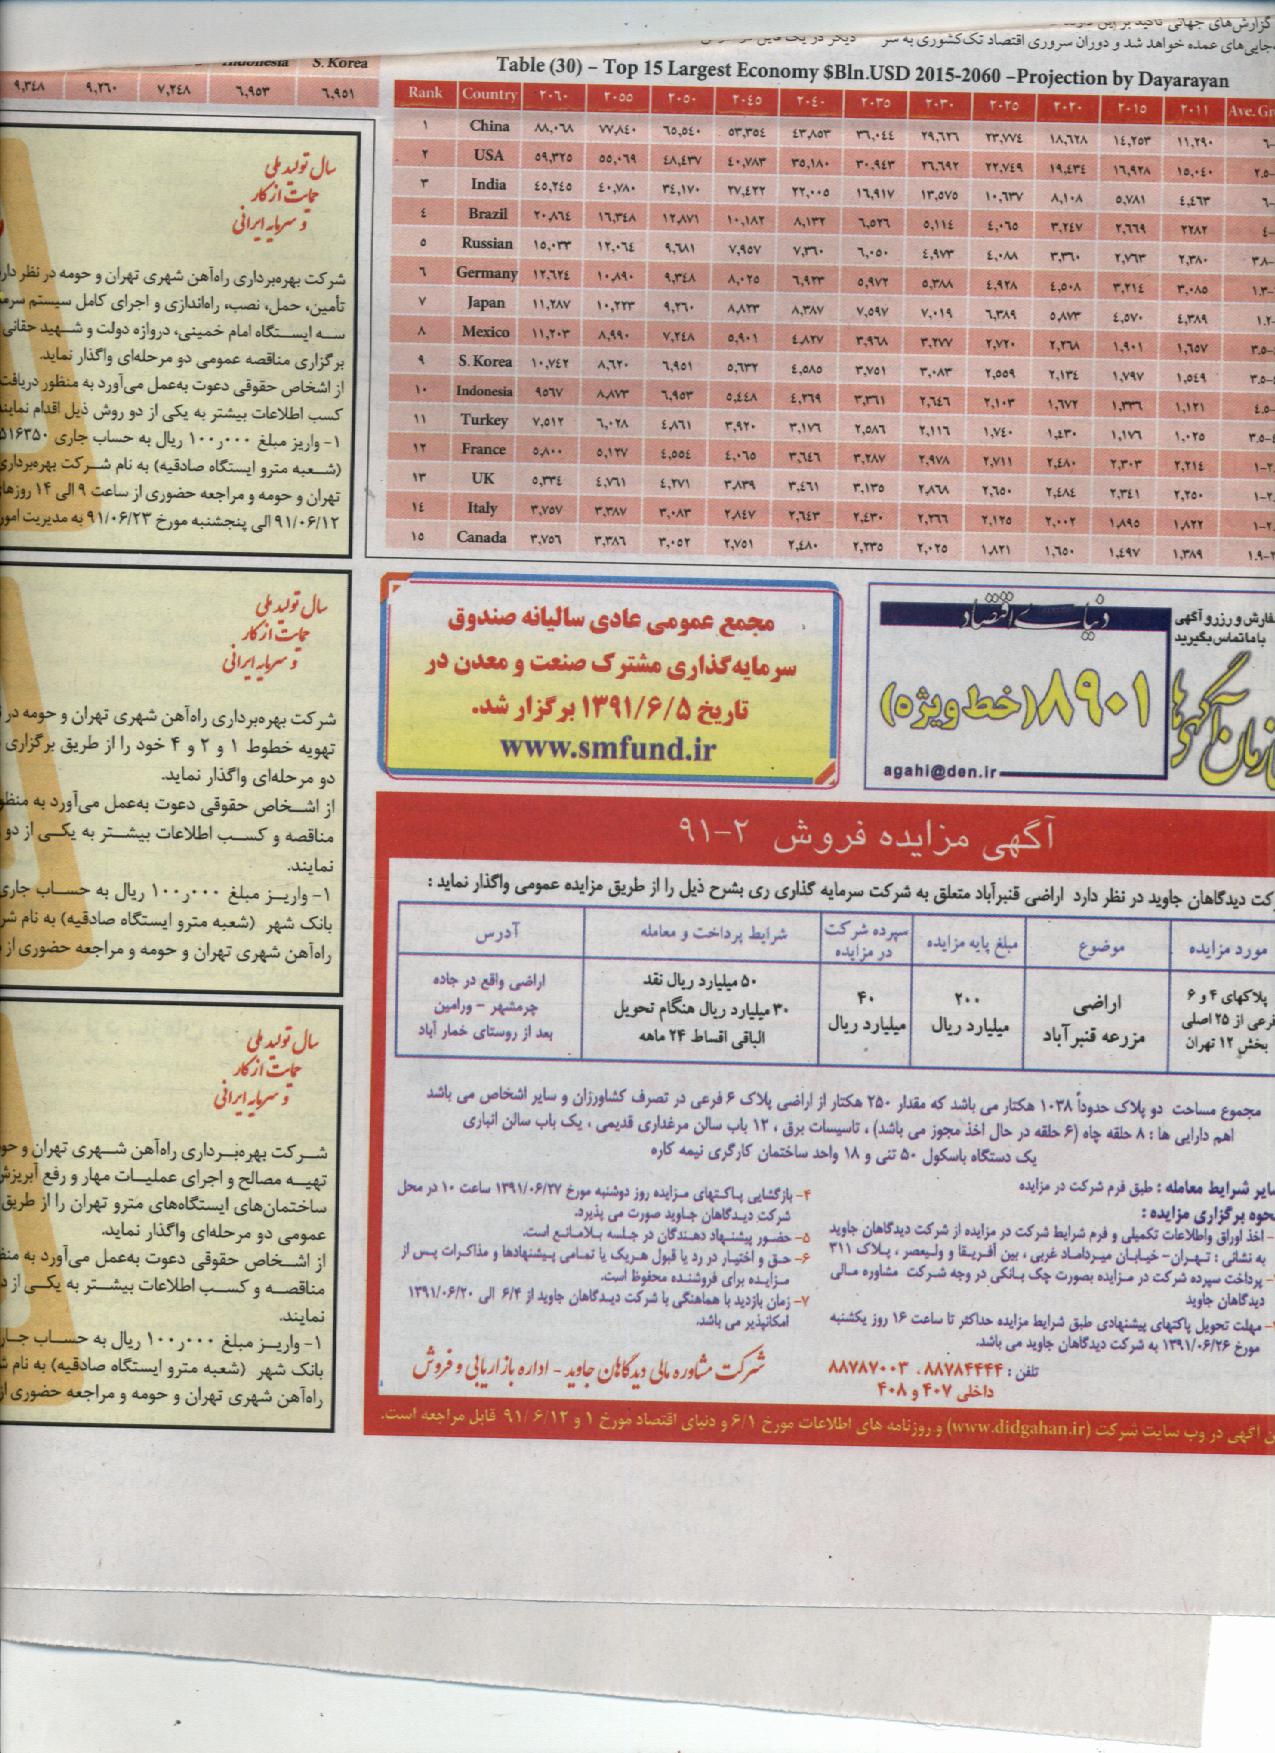 گزارش‌های جهانی تاکید بر این
جایی‌های عمده خواهد شد و دوران سروری اقتصاد تک‌کشوری به سر
Indonesia S. Korea
۹,۳۴۸ ۹,۲۶۰ ۷,۲۴۸ ۶,۹۵۳ ۶,۹۵۱
Table (30) – Top 15 Largest Economy $Bln.USD 2015-2060 –Projection by Dayarayan
Rank Country ۲۰۶۰ ۲۰۵۵ ۲۰۵۰ ۲۰٤۵ ۲۰٤۰ ۲۰۳۵ ۲۰۳۰ ۲۰۲۵ ۲۰۲۰ ۲۰۱۵ ۲۰۱۱ Ave. Gr
۱ China ۸۸,۰٦۸ ۷۷,۸٤۰ ٦۵,۵٤۰ ۵۳,۳۵٤ ٤۳,۸۵۳ ۳٦,۰٤٤ ۲۹,٦۲٦ ۲۳,۷۷٤ ۱۸,٦۲۸ ۱٤,۲۵۳ ۱۱,۲۹۰
۲ USA ۵۹,۳۲۵ ۵۵,۰٦۹ ٤۸,٤۳۷ ٤۰,۷۸۳ ۳۵,۱۸۰ ۳۰,۹٤۳ ۲٦,٦۹۲ ۲۲,۷٤۹ ۱۹,٤۳٤ ۱٦,۹۲۸ ۱۵,۰٤۰
۳ India ٤۵,۲٤۵ ٤۰,۷۸۰ ۳٤,۱۷۰ ۲۷,٤۲۲ ۲۲,۰۰۵ ۱٦,۹۱۷ ۱۳,۵۷۵ ۱۰,٦۳۷ ۸,۱۰۸ ۵,۷۸۱ ٤,٤٦۳
٤ Brazil ۲۰,۸٦٤ ۱٦,۳٤۸ ۱۲,۸۷۱ ۱۰,۱۸۲ ۸,۱۳۲ ٦,۵۲٦ ۵,۱۱٤ ٤,۰٦۵ ۳,۲٤۷ ۲,٦٦۹ ۲۲۸۲
۵ Russian ۱۵,۰۳۳ ۱۲,۰٦٤ ۹,٦۸۱ ۷,۹۵۷ ۷,۳٦۰ ٦,۰۵۰ ٤,۹۷۳ ٤,۰۸۸ ۳,۳٦۰ ۲,۷٦۳ ۲,۳۸۰
٦ Germany ۱۲,٦۲٤ ۱۰,۸۹۰ ۹,۳٤۸ ۸,۰۲۵ ٦,۹۲۳ ۵,۹۷۲ ۵,۳۸۸ ٤,۹۲۸ ٤,۵۰۸ ۳,۲۱٤ ۳,۰۸۵
۷ Japan ۱۱,۲۸۷ ۱۰,۲۲۳ ۹,۲٦۰ ۸,۸۲۳ ۸,۳۸۷ ۷,۵۹۷ ۷,۰۱۹ ٦,۳۸۹ ۵,۸۷۳ ٤,۵۷۰ ٤,۳۸۹
۸ Mexico ۱۱,۲۰۳ ۸,۹۹۰ ۷,۲٤۸ ۵,۹۰۱ ٤,۸۲۷ ۳,۹٦۸ ۳,۲۷۷ ۲,۷۲۰ ۲,۲٦۸ ۱,۹۰۱ ۱,٦۵۷
۹ S. Korea ۱۰,۷٤۲ ۸,٦۲۰ ٦,۹۵۱ ۵,٦۳۲ ٤,۵۸۵ ۳,۷۵۱ ۳,۰۸۳ ۲,۵۵۹ ۲,۱۳٤ ۱,۷۹۷ ۱,۵٤۹
۱۰ Indonesia ۹۵٦۷ ۸,۸۷۳ ٦,۹۵۳ ۵,٤٤۸ ٤,۲٦۹ ۳,۳٦۱ ۲,٦٤٦ ۲,۱۰۳ ۱,٦۷۲ ۱,۳۳٦ ۱,۱۲۱
۱۱ Turkey ۷,۵۱۲ ٦,۰۲۸ ٤,۸٦۱ ۳,۹۲۰ ۳,۱۷٦ ۲,۵۸٦ ۲,۱۱٦ ۱,۷٤۰ ۱,٤۳۰ ۱,۱۷٦ ۱,۰۲۵
۱۲ France ۵,۸۰۰ ۵,۱۲۷ ٤,۵۵٤ ٤,۰٦۵ ۳,٦٤٦ ۳,۲۸۷ ۲,۹۷۸ ۲,۷۱۱ ۲,٤۸۰ ۲,۳۰۳ ۲,۲۱٤
۱۳ UK ۵,۳۳٤ ٤,۷٦۱ ٤,۲۷۱ ۳,۸۳۹ ۳,٤٦۱ ۳,۱۳۵ ۲,۸٦۸ ۲,٦۵۰ ۲,٤۸٤ ۲,۳٤۱ ۲,۲۵۰
۱٤ Italy ۳,۷۵۷ ۳,۳۸۷ ۳,۰۸۳ ۲,۸٤۷ ۲,٦٤۳ ۲,٤۳۰ ۲,۲٦٦ ۲,۱۲۵ ۲,۰۰۲ ۱,۸۹۵ ۱,۸۲۲
۱۵ Canada ۳,۷۵٦ ۳,۳۸٦ ۳,۰۵۲ ۲,۷۵۱ ۲,٤۸۰ ۲,۲۳۵ ۲,۰۲۵ ۱,۸۲۱ ۱,٦۵۰ ۱,٤۹۷ ۱,۳۸۹
سال تولید ملی
حمایت از کار
و سرمایه ایرانی
شرکت بهره‌برداری راه‌آهن شهری تهران و حومه در نظر دارد
تأمین، حمل، نصب، راه‌اندازی و اجرای کامل سیستم
سه ایستگاه امام خمینی، دروازه دولت و شهید حقانی
برگزاری مناقصه عمومی دو مرحله‌ای واگذار نماید.
از اشخاص حقوقی دعوت به‌عمل می‌آورد به منظور دریافت
کسب اطلاعات بیشتر به یکی از دو روش ذیل اقدام نمایند
۱- واریز مبلغ ۱۰۰٫۰۰۰ ریال به حساب جاری
(شعبه مترو ایستگاه صادقیه) به نام شرکت بهره‌برداری
تهران و حومه و مراجعه حضوری از ساعت ۹ الی ۱۴ روزهای
۹۱/۰۶/۱۲ الی پنجشنبه مورخ ۹۱/۰۶/۲۳ به مدیریت امور
سال تولید ملی
حمایت از کار
و سرمایه ایرانی
شرکت بهره‌برداری راه‌آهن شهری تهران و حومه در
تهویه خطوط ۱ و ۲ و ۴ خود را از طریق برگزاری
دو مرحله‌ای واگذار نماید.
از اشخاص حقوقی دعوت به‌عمل می‌آورد به
مناقصه و کسب اطلاعات بیشتر به یکی از دو
نمایند.
۱- واریز مبلغ ۱۰۰٫۰۰۰ ریال به حساب جاری
بانک شهر (شعبه مترو ایستگاه صادقیه) به نام
راه‌آهن شهری تهران و حومه و مراجعه حضوری از
سال تولید ملی
حمایت از کار
و سرمایه ایرانی
شرکت بهره‌برداری راه‌آهن شهری تهران و
تهیه مصالح و اجرای عملیات مهار و رفع آبریزش
ساختمان‌های ایستگاه‌های مترو تهران را از طریق
عمومی دو مرحله‌ای واگذار نماید.
از اشخاص حقوقی دعوت به‌عمل می‌آورد به
مناقصه و کسب اطلاعات بیشتر به یکی از
نمایند.
۱- واریز مبلغ ۱۰۰٫۰۰۰ ریال به حساب
بانک شهر (شعبه مترو ایستگاه صادقیه) به نام
راه‌آهن شهری تهران و حومه و مراجعه حضوری
مجمع عمومی عادی سالیانه صندوق
سرمایه‌گذاری مشترک صنعت و معدن در
تاریخ ۱۳۹۱/۶/۵ برگزار شد.
www.smfund.ir
دنیای اقتصاد
۸۹۰۱ (خط ویژه)
agahi@den.ir
سفارش و رزرو آگهی
با ما تماس بگیرید
سازمان آگهی‌ها
آگهی مزایده فروش ۲-۹۱
شرکت دیدگاهان جاوید در نظر دارد اراضی قنبرآباد متعلق به شرکت سرمایه گذاری ری بشرح ذیل را از طریق مزایده عمومی واگذار نماید :
مورد مزایده موضوع مبلغ پایه مزایده سپرده شرکت در مزایده شرایط پرداخت و معامله آدرس
پلاکهای ۴ و ۶ فرعی از ۲۵ اصلی بخش ۱۲ تهران
اراضی مزرعه قنبرآباد
۲۰۰ میلیارد ریال
۴۰ میلیارد ریال
۵۰ میلیارد ریال نقد
۳۰ میلیارد ریال هنگام تحویل
الباقی اقساط ۲۴ ماهه
اراضی واقع در جاده
چرمشهر - ورامین
بعد از روستای خمار آباد
مجموع مساحت دو پلاک حدوداً ۱۰۳۸ هکتار می باشد که مقدار ۲۵۰ هکتار از اراضی پلاک ۶ فرعی در تصرف کشاورزان و سایر اشخاص می باشد
اهم دارایی ها : ۸ حلقه چاه (۶ حلقه در حال اخذ مجوز می باشد) ، تاسیسات برق ، ۱۲ باب سالن مرغداری قدیمی ، یک باب سالن انباری
یک دستگاه باسکول ۵۰ تنی و ۱۸ واحد ساختمان کارگری نیمه کاره
سایر شرایط معامله : طبق فرم شرکت در مزایده
نحوه برگزاری مزایده :
اخذ اوراق واطلاعات تکمیلی و فرم شرایط شرکت در مزایده از شرکت دیدگاهان جاوید
به نشانی : تهران- خیابان میرداماد غربی ، بین آفریقا و ولیعصر ، پلاک ۳۱۱
پرداخت سپرده شرکت در مزایده بصورت چک بانکی در وجه شرکت مشاوره مالی
دیدگاهان جاوید
مهلت تحویل پاکتهای پیشنهادی طبق شرایط مزایده حداکثر تا ساعت ۱۶ روز یکشنبه
مورخ ۱۳۹۱/۰۶/۲۶ به شرکت دیدگاهان جاوید می باشد.
۴- بازگشایی پاکتهای مزایده روز دوشنبه مورخ ۱۳۹۱/۰۶/۲۷ ساعت ۱۰ در محل
شرکت دیدگاهان جاوید صورت می پذیرد.
۵- حضور پیشنهاد دهندگان در جلسه بلامانع است.
۶- حق و اختیار در رد یا قبول هریک یا تمامی پیشنهادها و مذاکرات پس از
مزایده برای فروشنده محفوظ است.
۷- زمان بازدید با هماهنگی با شرکت دیدگاهان جاوید از ۶/۴ الی ۱۳۹۱/۰۶/۲۰
امکانپذیر می باشد.
تلفن : ۸۸۷۸۴۴۴۴ ، ۸۸۷۸۷۰۰۳
داخلی ۴۰۷ و ۴۰۸
شرکت مشاوره مالی دیدگاهان جاوید - اداره بازاریابی و فروش
آگهی در وب سایت شرکت (www.didgahan.ir) و روزنامه های اطلاعات مورخ ۶/۱ و دنیای اقتصاد مورخ ۱ و ۹۱/۶/۱۲ قابل مراجعه است.